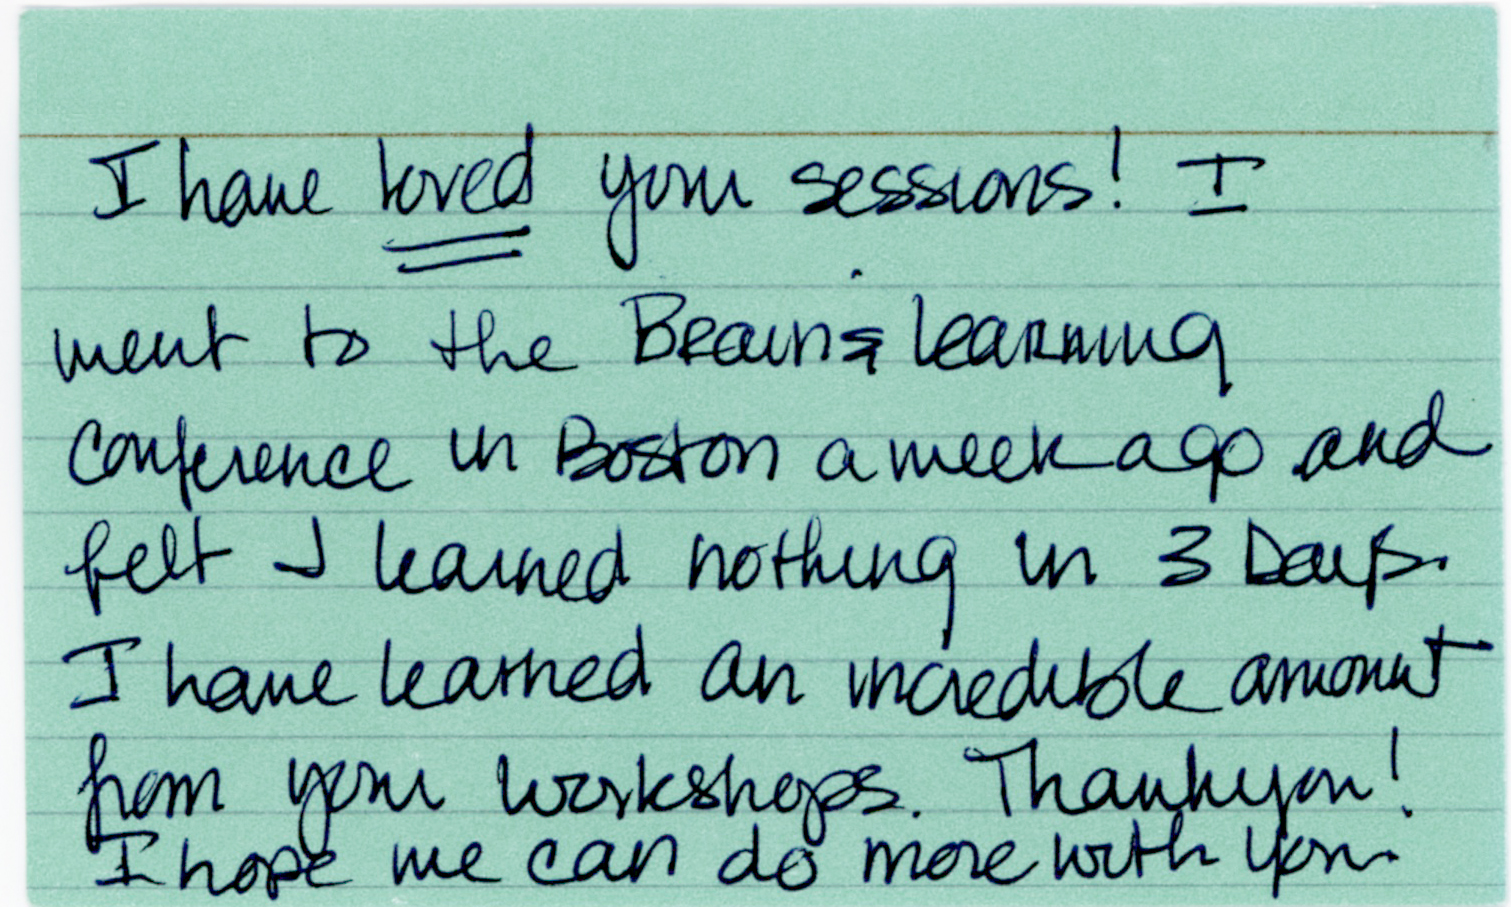 I have loved your sessions! I
went to the Brain & learning
conference in Boston a week ago and
felt I learned nothing in 3 Days.
I have learned an incredible amount
from your workshops. Thank you!
I hope we can do more with you.